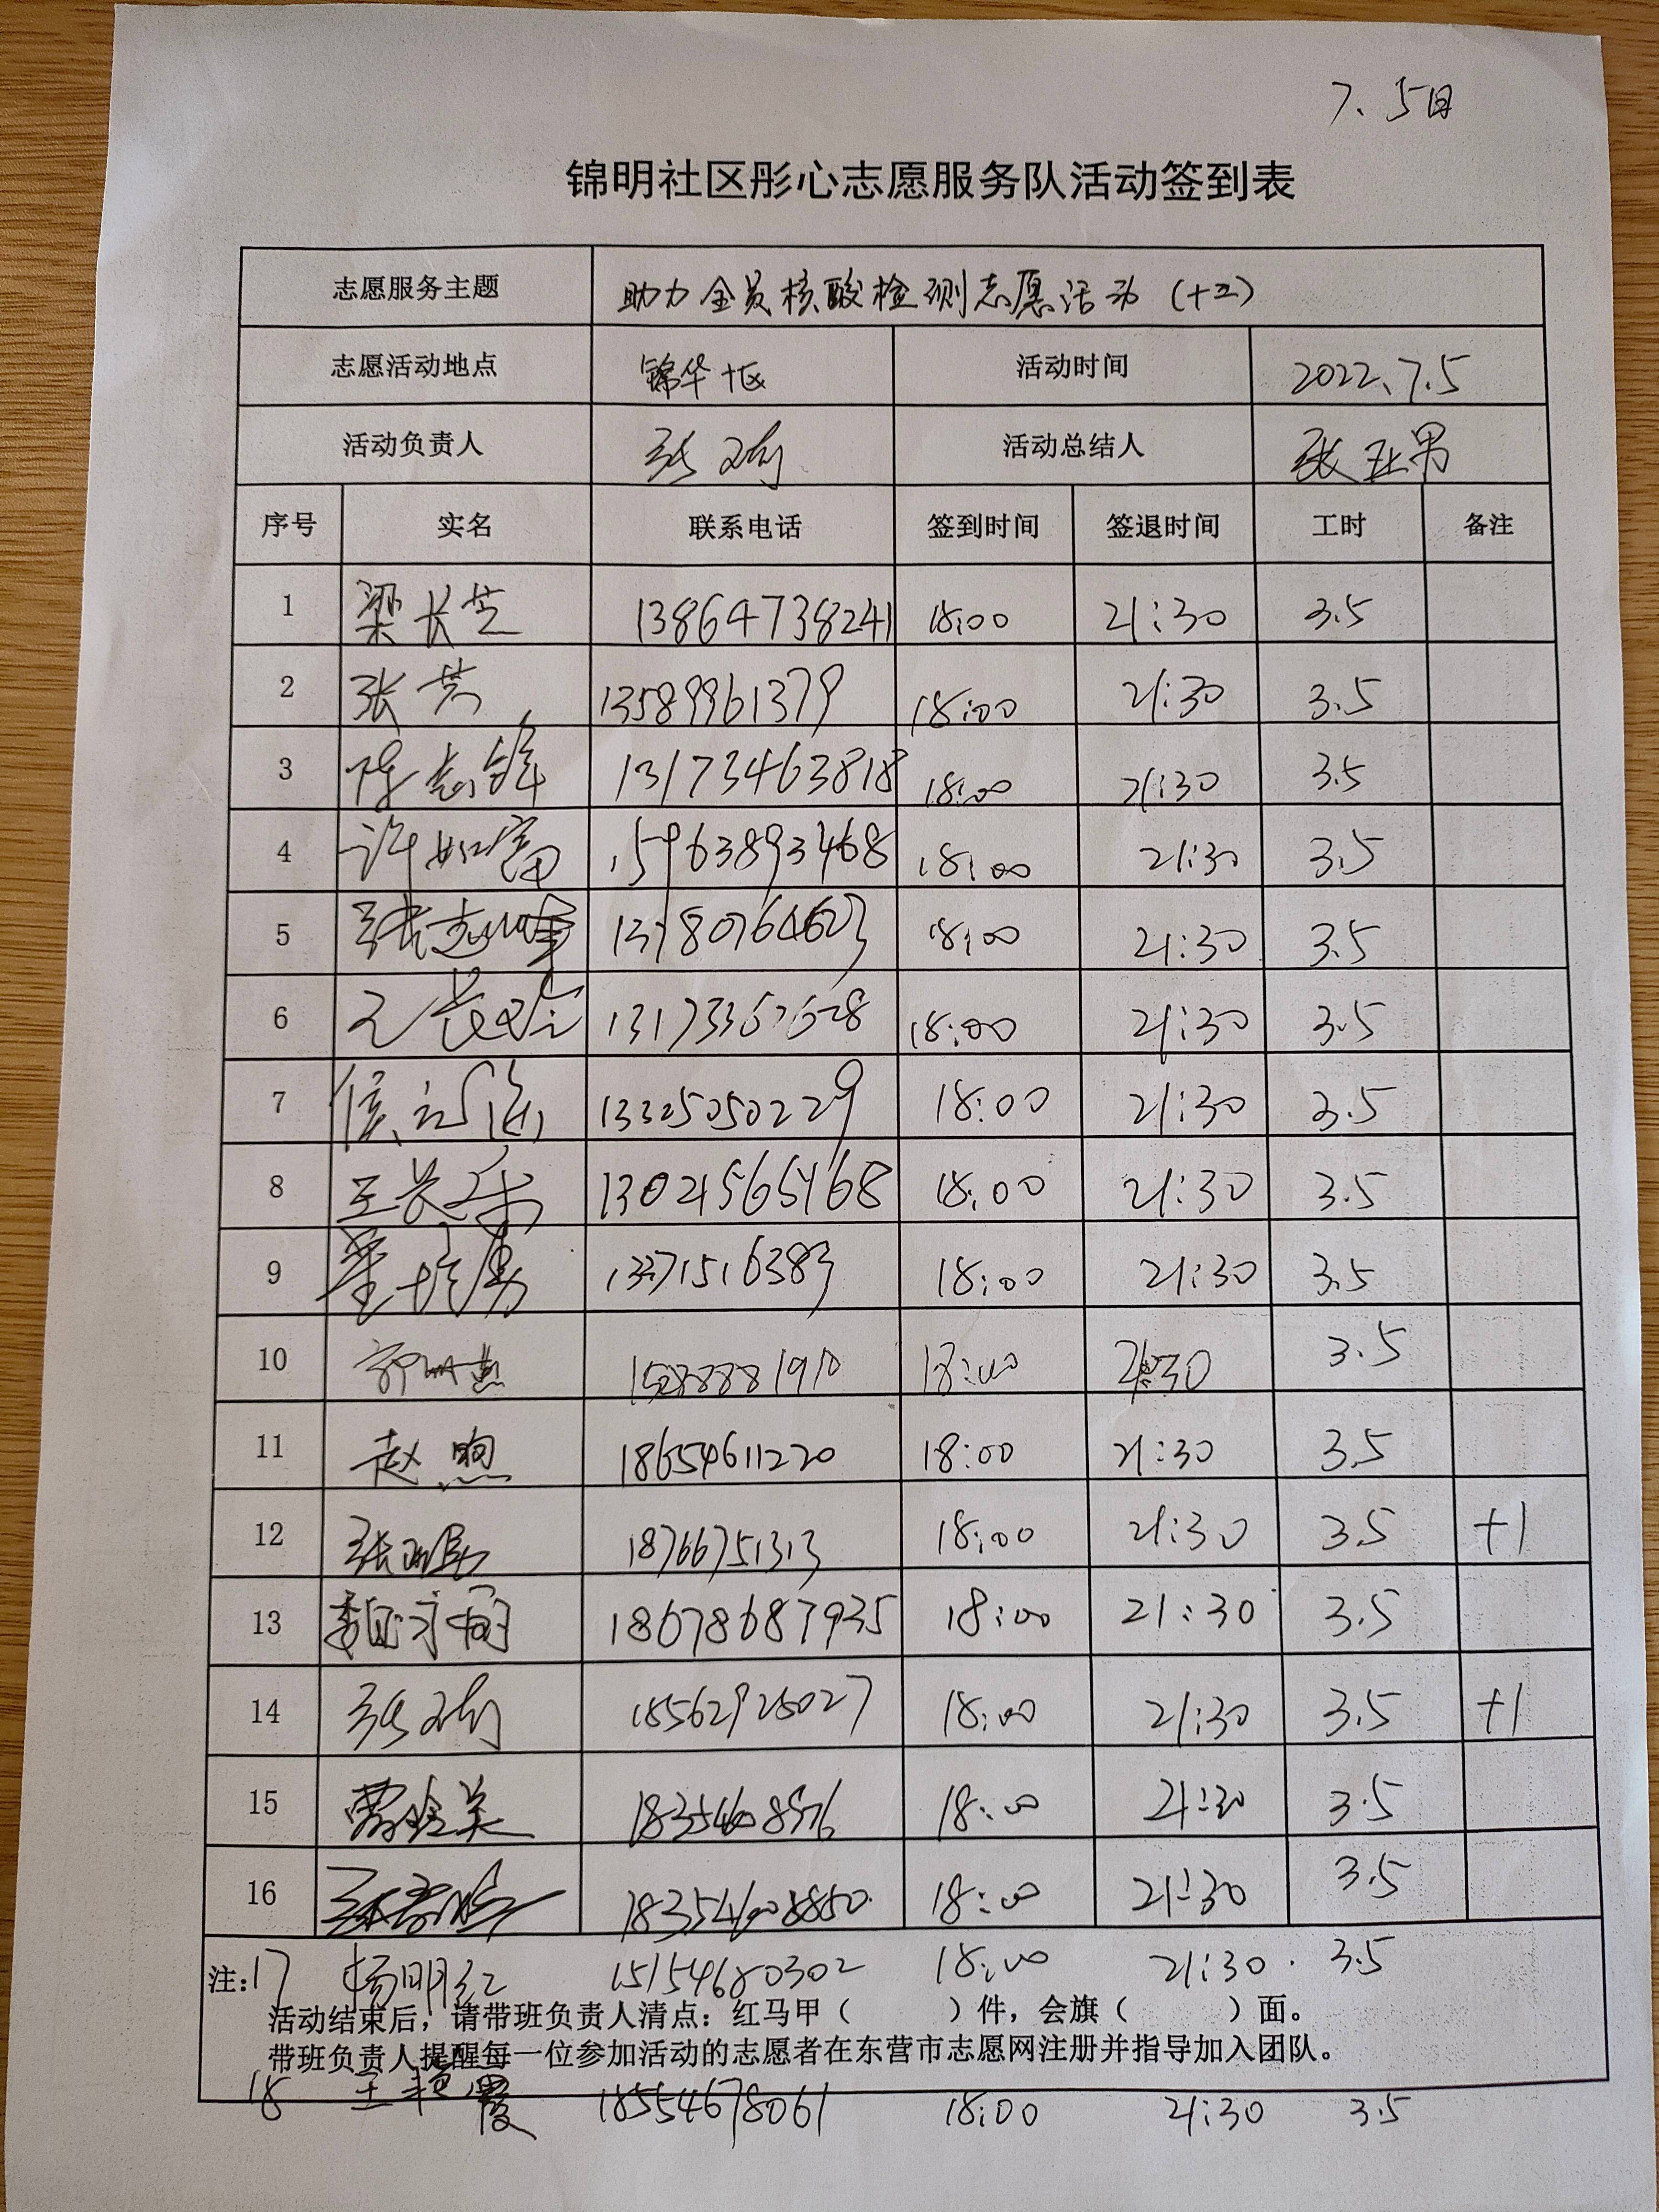 7、5日
锦明社区彤心志愿服务队活动签到表
志愿服务主题 助力全员核酸检测志愿活动（十二）
志愿活动地点 锦华 活动时间 2022、7.5
活动负责人 张 活动总结人 张亚男
序号 实名 联系电话 签到时间 签退时间 工时 备注
1 梁长芝 13864738241 18:00 21:30 3.5
2 张芳 13589961379 18:00 21:30 3.5
3 陈志锋 13173463818 18:00 21:30 3.5
4 许如富 15963893468 18:00 21:30 3.5
5 张志峰 18:00 21:30 3.5
6 18:00 21:30 3.5
7 13325050229 18:00 21:30 3.5
8 王 18:00 21:30 3.5
9 董 13371516383 18:00 21:30 3.5
10 18:00 21:30 3.5
11 赵煦 18654611220 18:00 21:30 3.5
12 张 18766751313 18:00 21:30 3.5 +1
13 18678687935 18:00 21:30 3.5
14 张 18562925027 18:00 21:30 3.5 +1
15 18:00 21:30 3.5
16 18:00 21:30 3.5
注: 17 杨明红 15154680302 18:00 21:30 3.5
活动结束后，请带班负责人清点：红马甲（ ）件，会旗（ ）面。
带班负责人提醒每一位参加活动的志愿者在东营市志愿网注册并指导加入团队。
18 王艳霞 18554678061 18:00 21:30 3.5